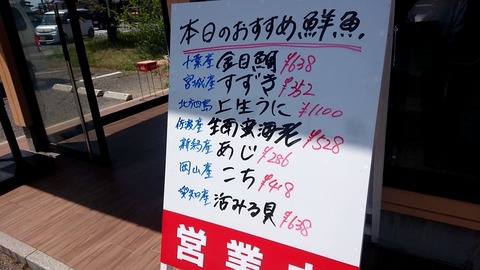 本日のおすすめ鮮魚
千葉産 金目鯛 ¥638
宮城産 すずき ¥352
北方四島 上生うに ¥1100
佐渡産 生南蛮海老 ¥528
新潟産 あじ ¥286
岡山産 こち ¥418
愛知産 活みる貝 ¥638
営業